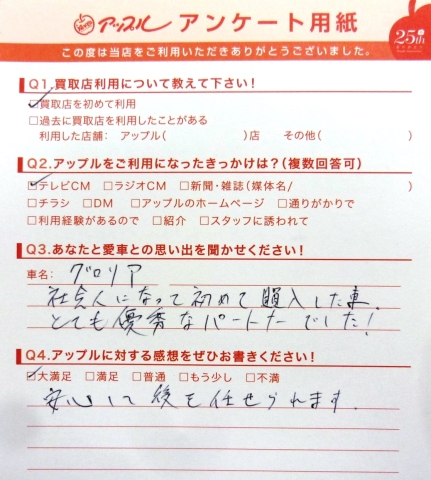 アップル アンケート用紙
25th
この度は当店をご利用いただきありがとうございました。
Q1.買取店利用について教えて下さい!
☑買取店を初めて利用
□過去に買取店を利用したことがある
利用した店舗: アップル( )店 その他( )
Q2.アップルをご利用になったきっかけは?(複数回答可)
☑テレビCM □ラジオCM □新聞・雑誌(媒体名/ )
□チラシ □DM □アップルのホームページ □通りがかりで
□利用経験があるので □紹介 □スタッフに誘われて
Q3.あなたと愛車との思い出を聞かせください!
車名: グロリア
社会人になって初めて購入した車.
とても優秀なパートナーでした!
Q4.アップルに対する感想をぜひお書きください!
☑大満足 □満足 □普通 □もう少し □不満
安心して後を任せられます.